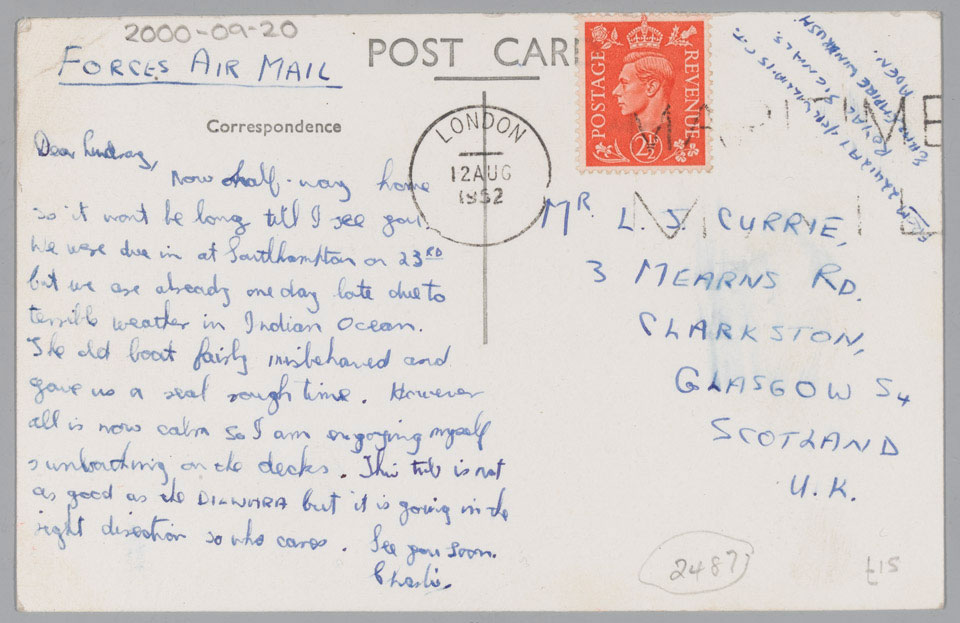 2000-09-20
FORCES AIR MAIL
POST CAR
Correspondence
LONDON
12 AUG
1952
POSTAGE
REVENUE
2½
MARITIME
MAIL
ROYAL SIGNALS.
EMPIRE WINDRUSH
ADEN.
Dear Lindsay,
Now half-way home
so it wont be long till I see you.
We were due in at Southampton on 23RD
but we are already one day late due to
terrible weather in Indian Ocean.
The old boat fairly misbehaved and
gave us a real rough time. However
all is now calm so I am enjoying myself
sunbathing on the decks. This tub is not
as good as the DILWARA but it is going in the
right direction so who cares. See you soon.
Charlie.
MR. L. S. CURRIE,
3 MEARNS RD.
CLARKSTON,
GLASGOW S4
SCOTLAND
U.K.
2487
£15